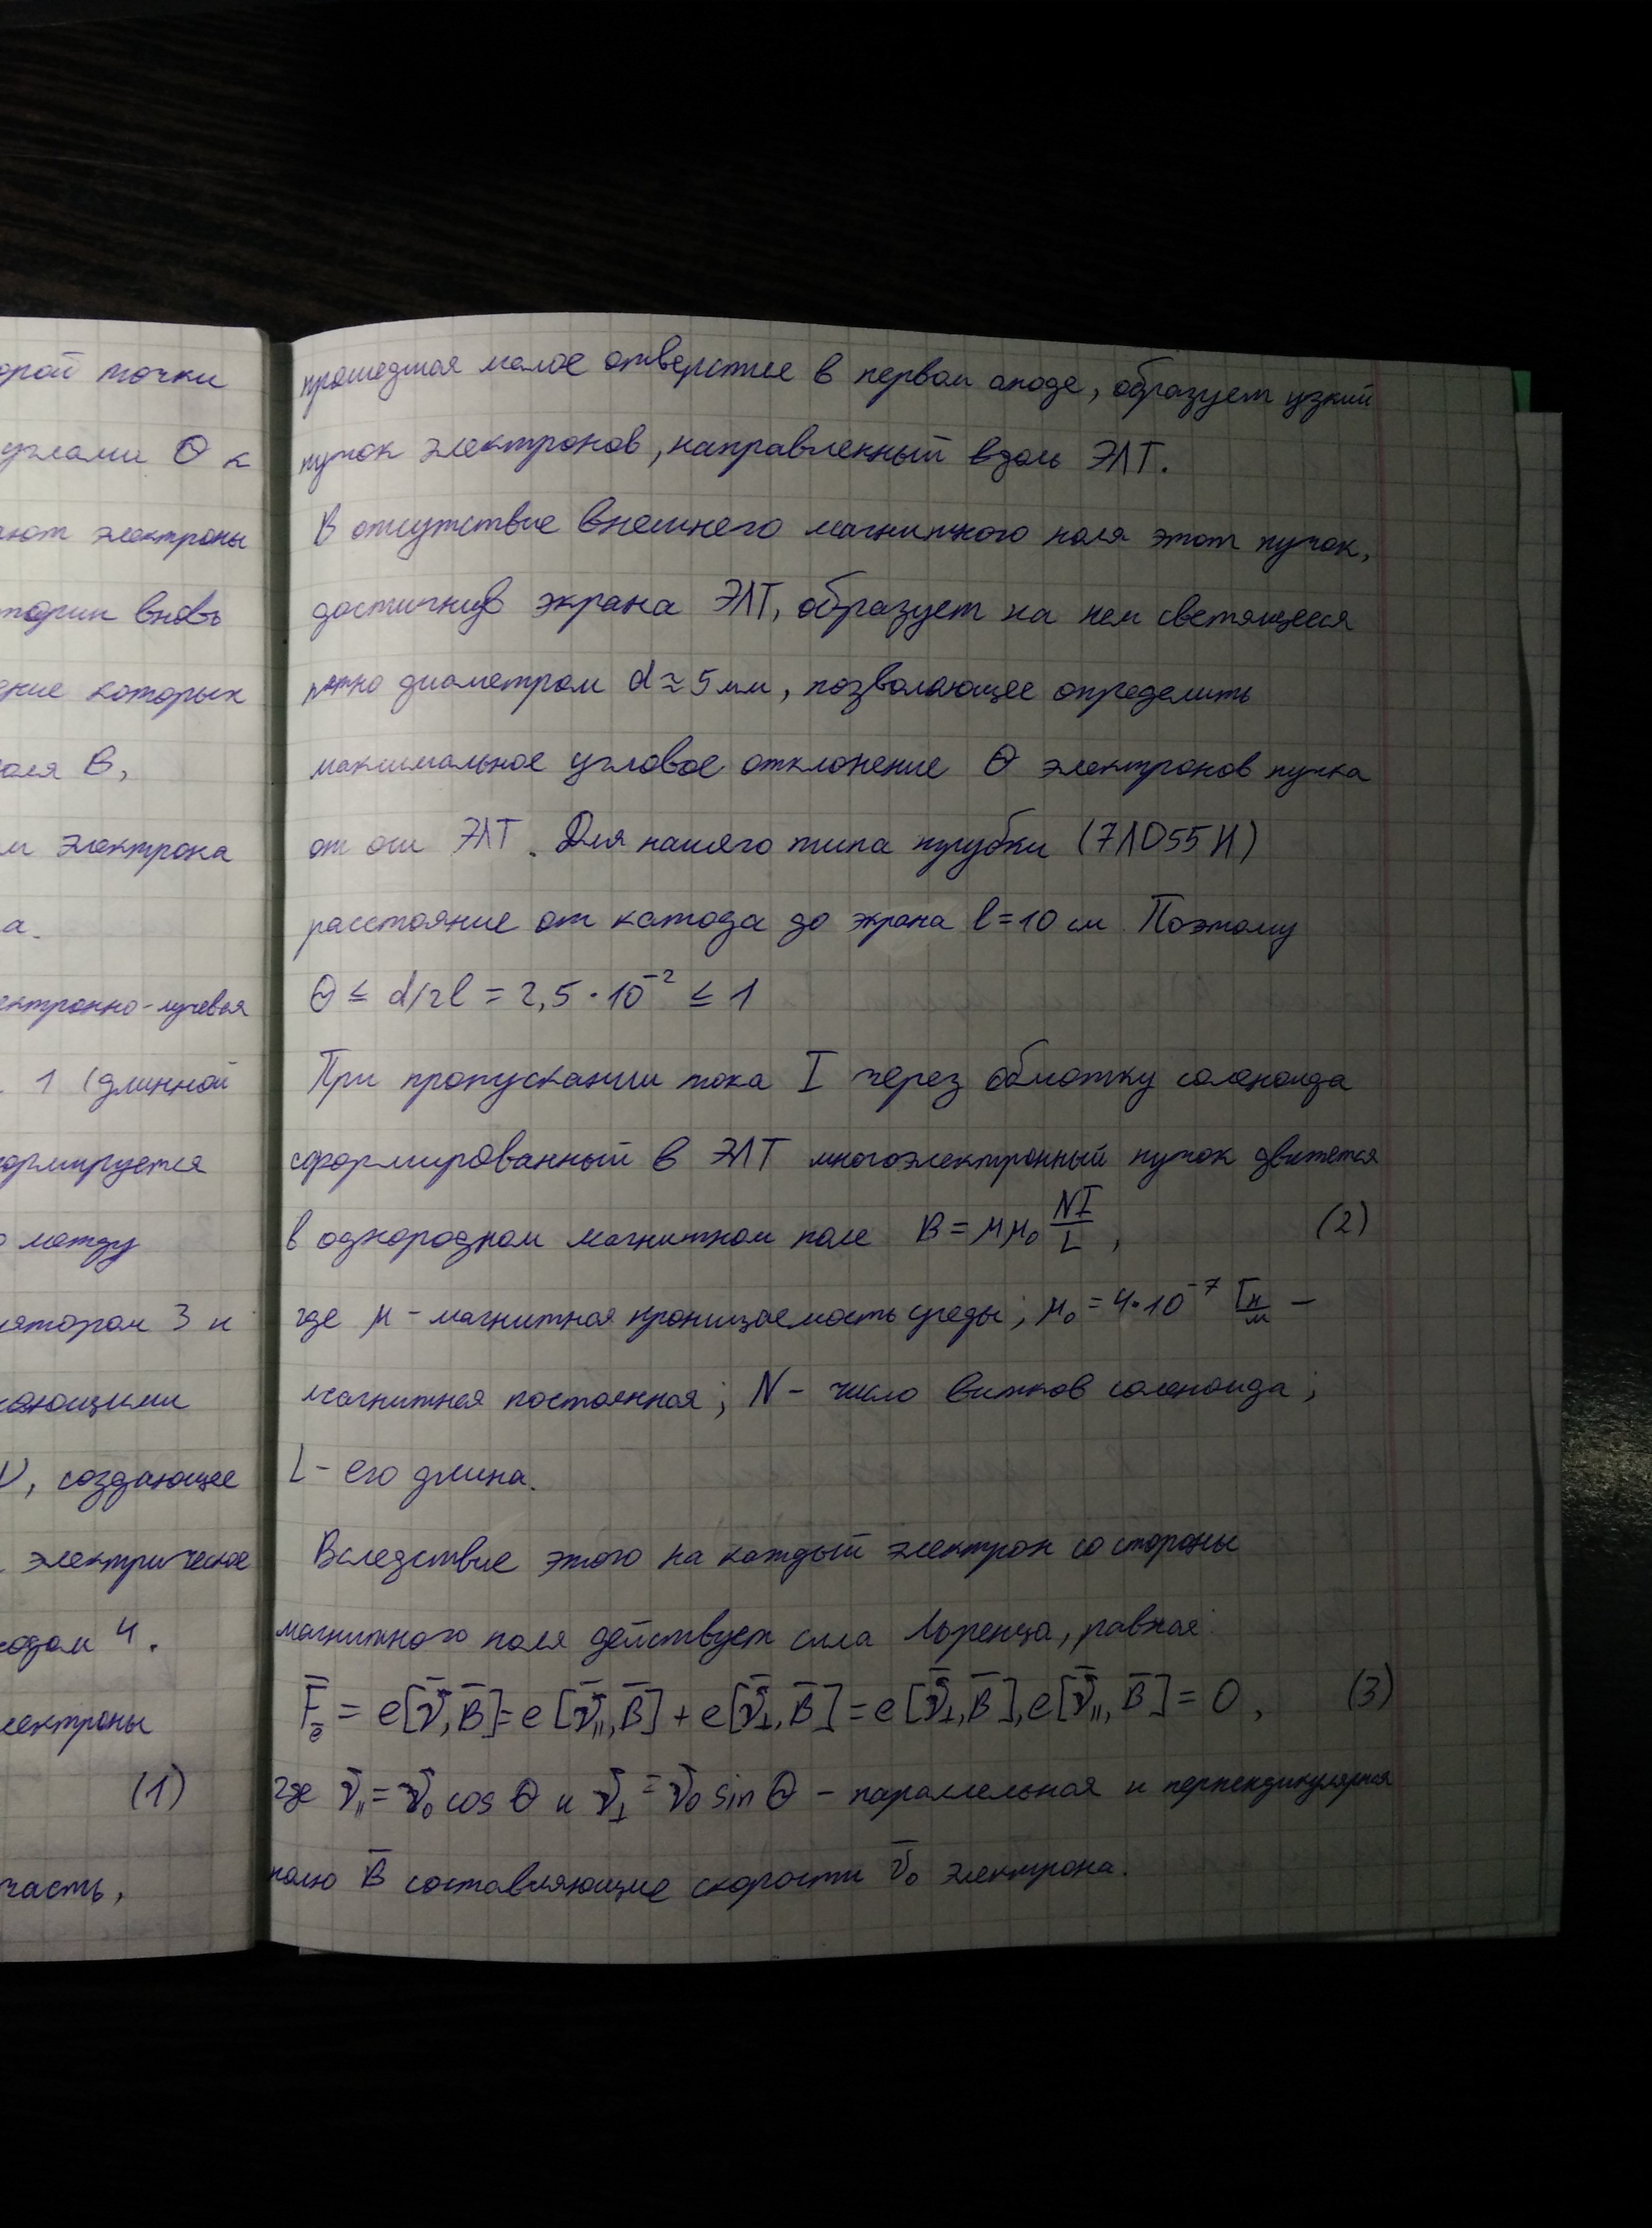 орой точки
углами Θ к
ают электроны
тории вновь
ение которых
оля B,
м электрона
а.
ектронно-лучевая
. 1 (длинной
ормируется
о между
лятором 3 и
кающими
, создающее
. электрическое
одом 4.
лектроны
(1)
часть,
прошедшая малое отверстие в первом аноде, образует узкий
пучок электронов, направленный вдоль ЭЛТ.
В отсутствие внешнего магнитного поля этот пучок,
достигнув экрана ЭЛТ, образует на нем светящееся
пятно диаметром d ≈ 5 мм, позволяющее определить
максимальное угловое отклонение Θ электронов пучка
от оси ЭЛТ. Для нашего типа трубки (7ЛО55И)
расстояние от катода до экрана l = 10 см. Поэтому
Θ ≤ d/2l = 2,5 · 10⁻² ≤ 1
При пропускании тока I через обмотку соленоида
сформированный в ЭЛТ многоэлектронный пучок движется
в однородном магнитном поле B = μμ₀ NI/L , (2)
где μ - магнитная проницаемость среды; μ₀ = 4·10⁻⁷ Гн/м –
магнитная постоянная; N - число витков соленоида;
L - его длина.
Вследствие этого на каждый электрон со стороны
магнитного поля действует сила Лоренца, равная:
F̄ₑ̄ = e[v̄, B̄] = e[v̄∥, B̄] + e[v̄⊥, B̄] = e[v̄⊥, B̄], e[v̄∥, B̄] = 0, (3)
где v̄∥ = v̄₀ cos Θ и v̄⊥ = v̄₀ sin Θ – параллельная и перпендикулярная
полю B̄ составляющие скорости v̄₀ электрона.